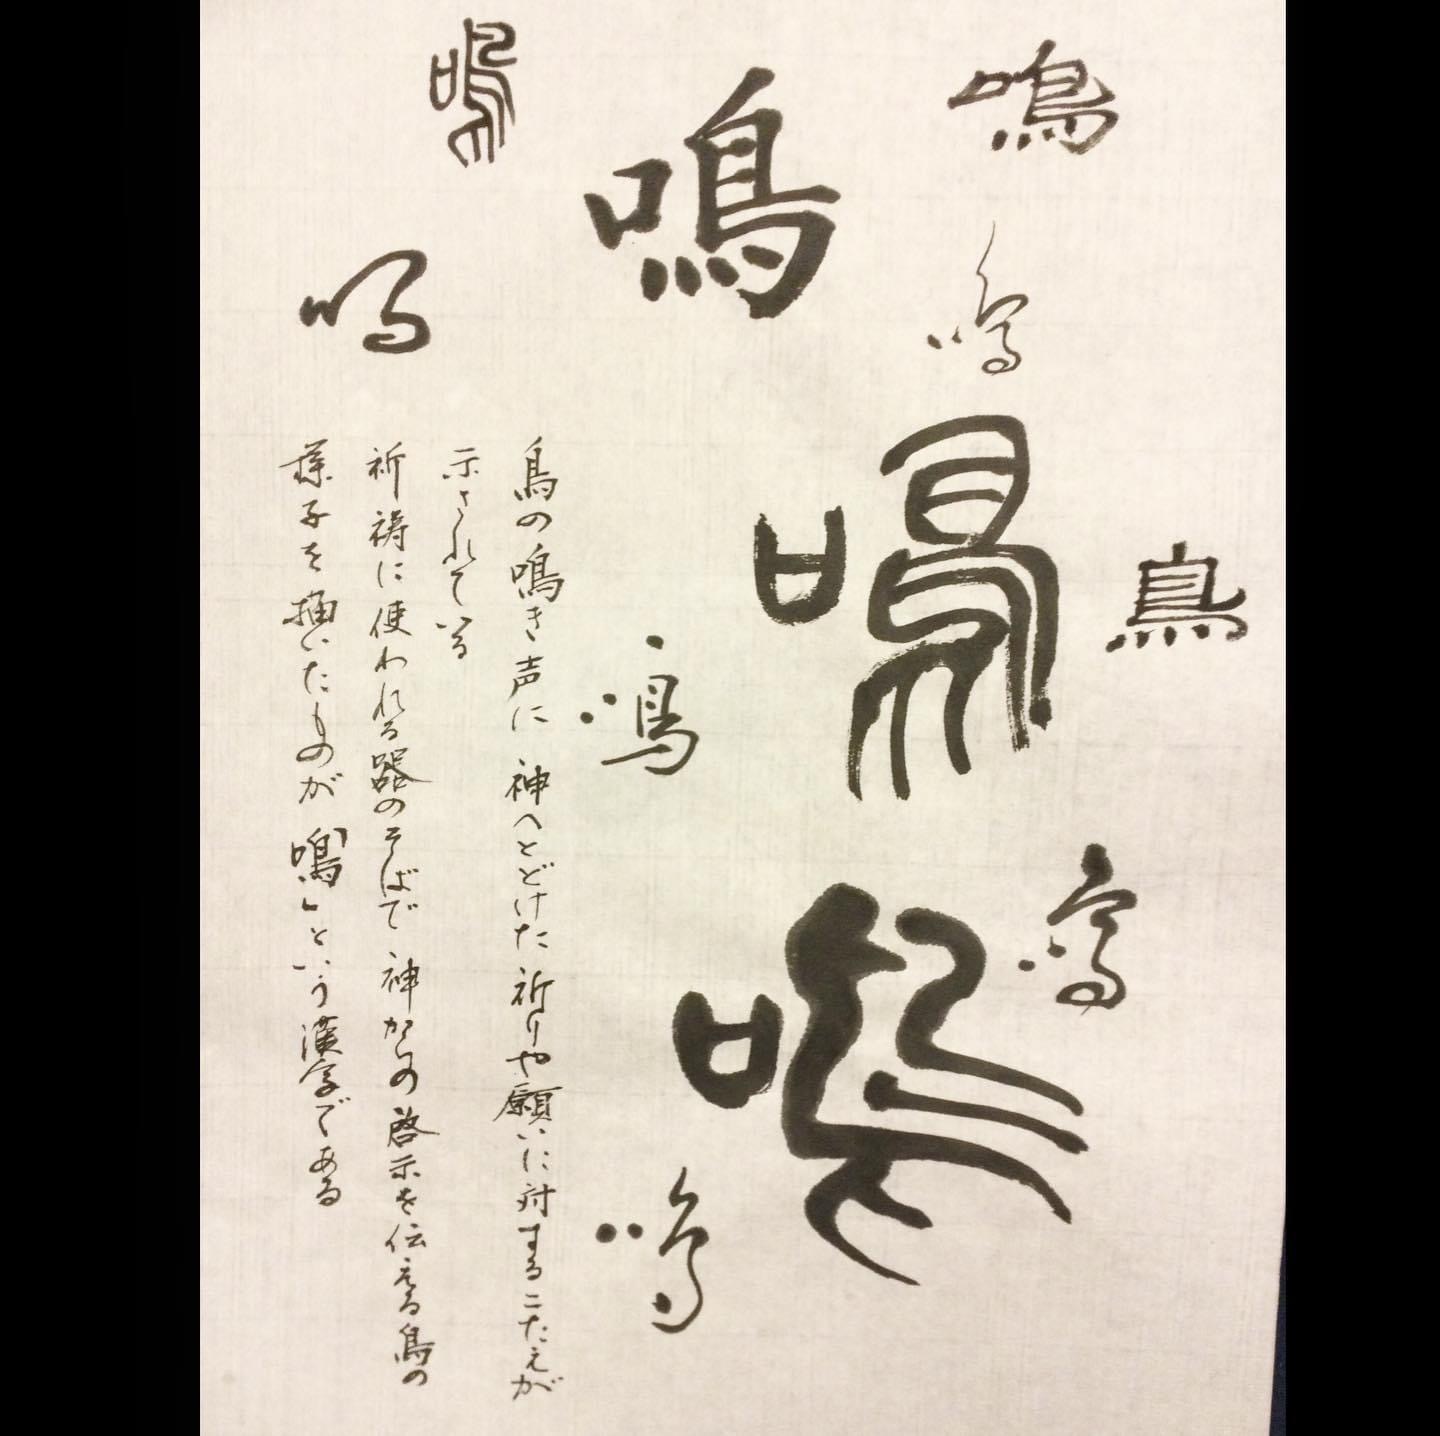 鳴
鳴
鳥
鳴
鳴
鳴
鳴
鳴
鳴
鳴
鳴
鳥の鳴き声に 神へとどけた祈りや願いに対するこたえが
示されている
祈祷に使われる器のそばで神からの啓示を伝える鳥の
様子を描いたものが「鳴」という漢字である